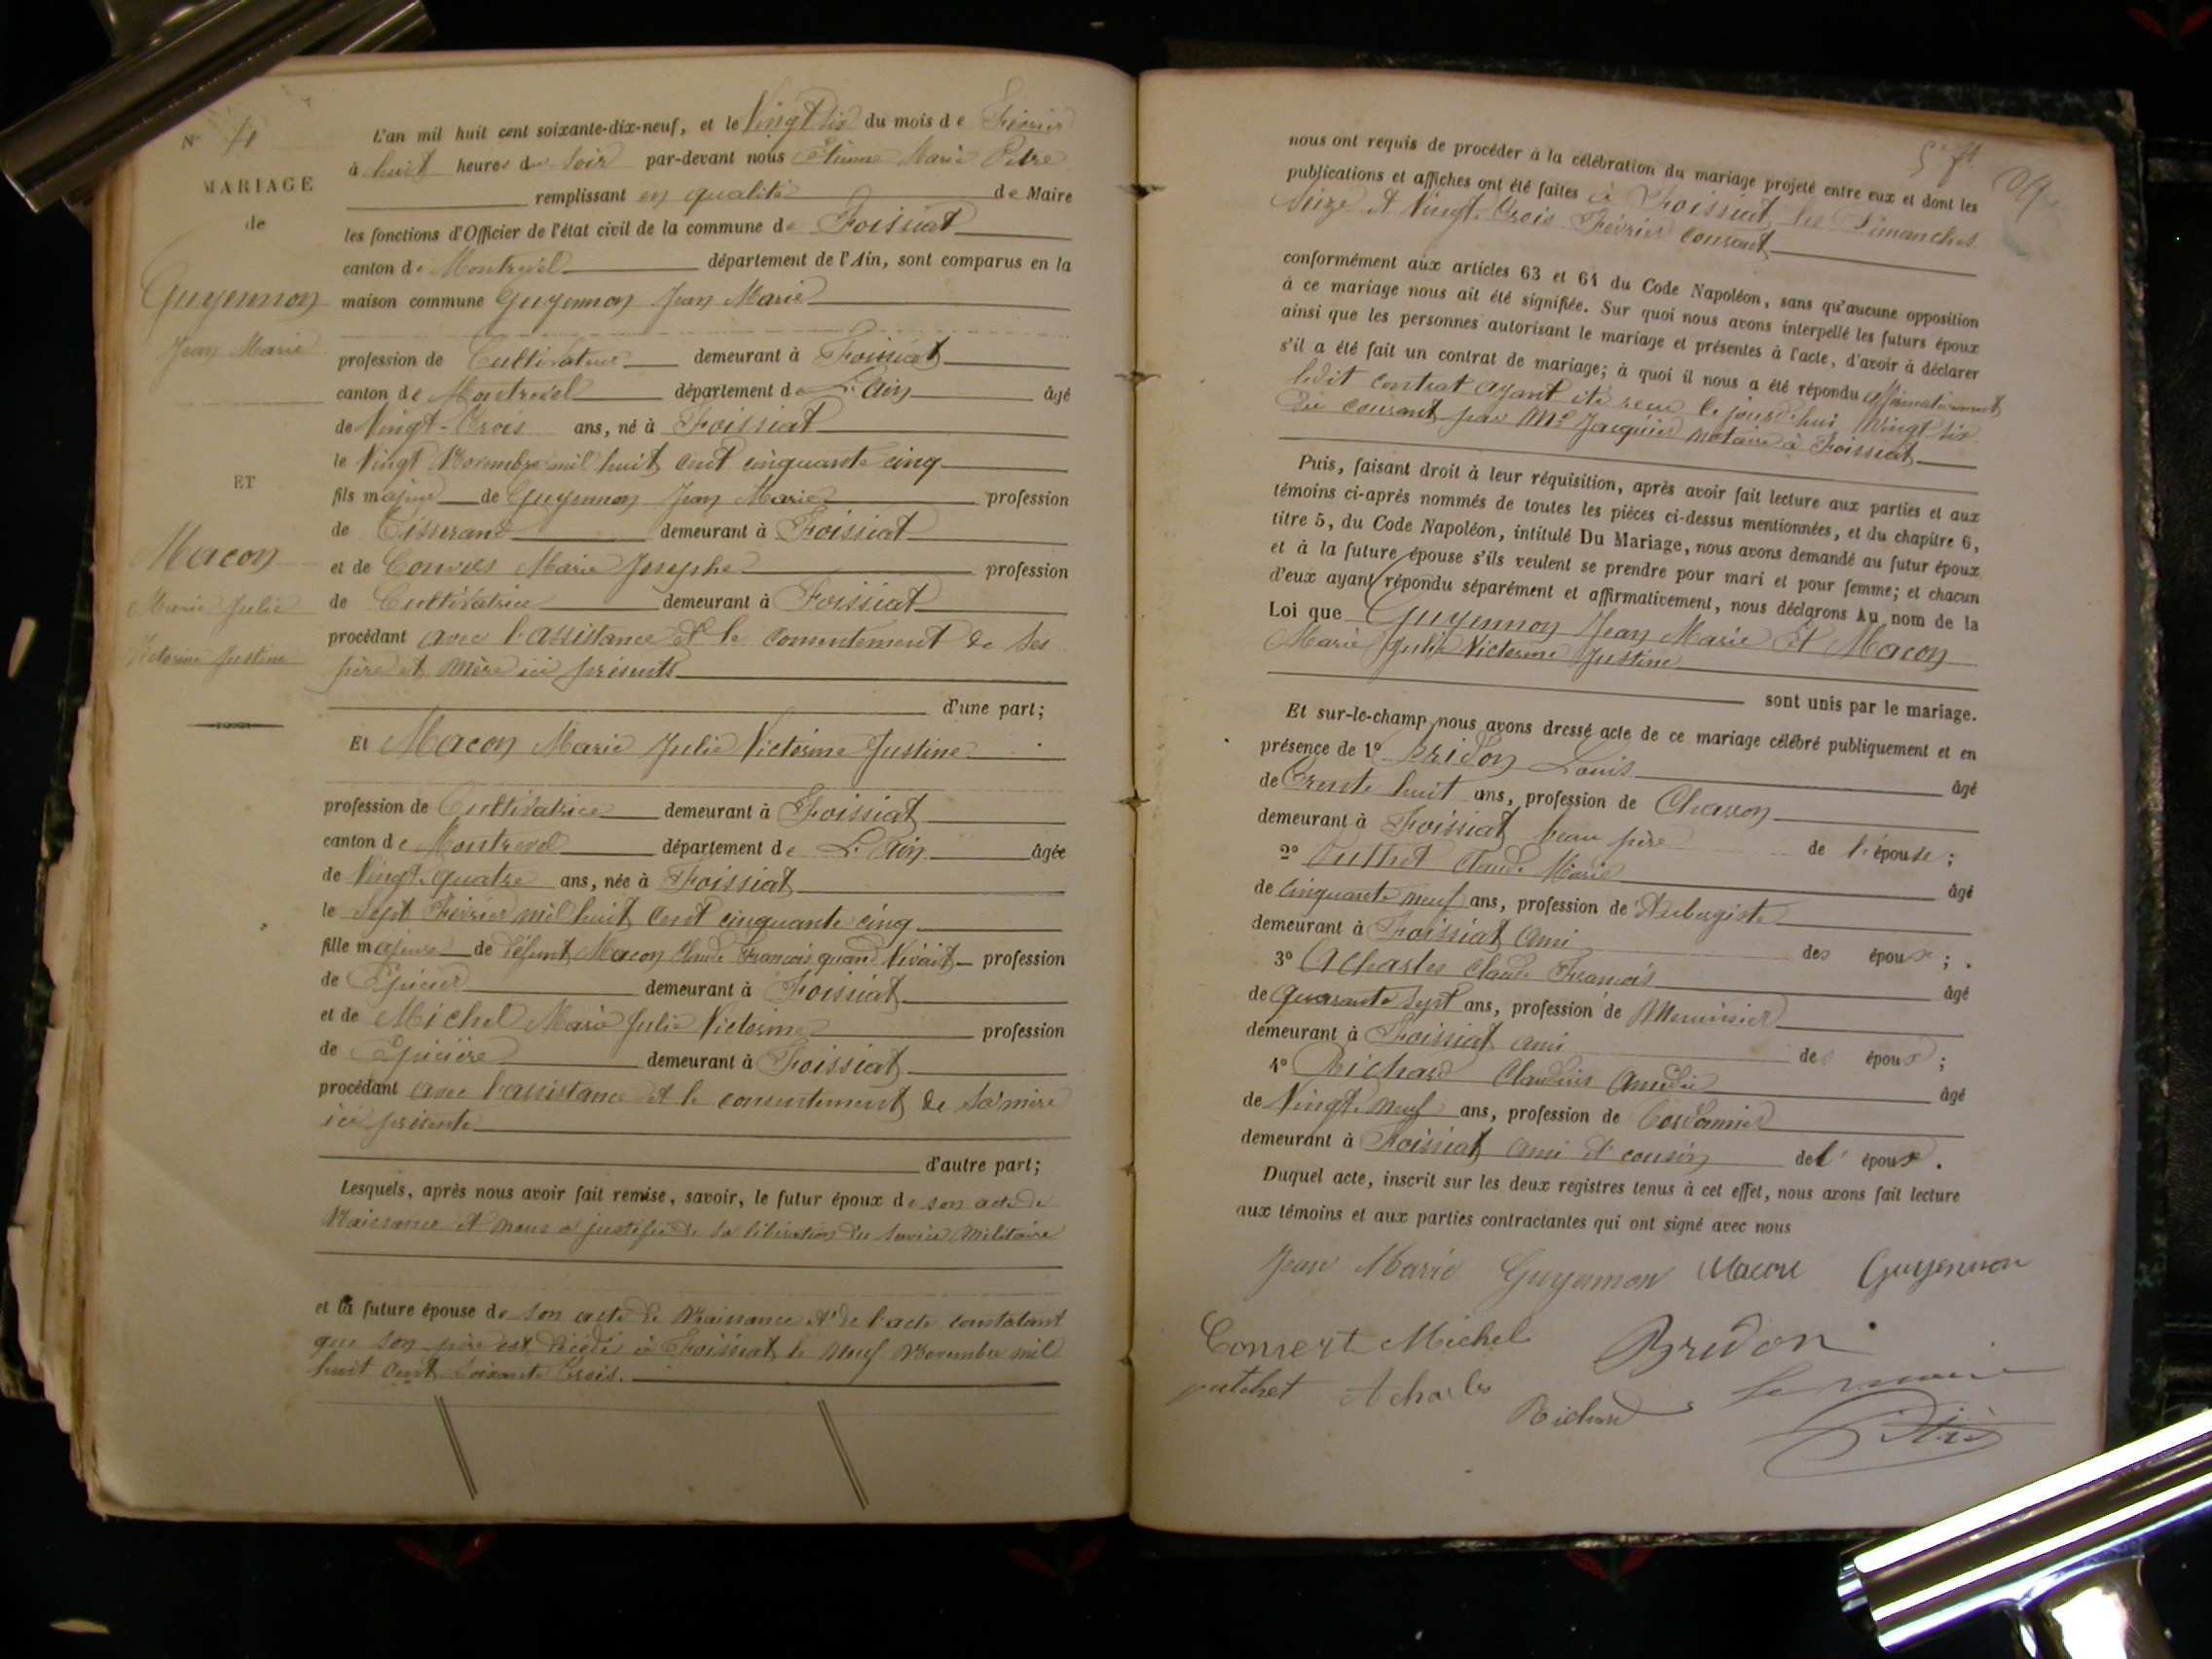 N° 4
MARIAGE
de
Guyennon
Jean Marie
ET
Macon
Marie Julie
Victorine Justine
L'an mil huit cent soixante-dix-neuf, et le Vingt six du mois de Février
à huit heures du Soir par-devant nous Etienne Marie Pitre
remplissant en qualité de Maire
les fonctions d'Officier de l'état civil de la commune de Foissiat
canton de Montrevel département de l'Ain, sont comparus en la
maison commune Guyennon Jean Marie
profession de Cultivateur demeurant à Foissiat
canton de Montrevel département de L'Ain âgé
de Vingt-Trois ans, né à Foissiat
le Vingt Novembre mil huit cent cinquante cinq
fils majeur de Guyennon Jean Marie profession
de Tisserand demeurant à Foissiat
et de Convers Marie Josephe profession
de Cultivatrice demeurant à Foissiat
procédant avec l'assistance et le consentement de ses
père et mère ici présents
d'une part;
Et Macon Marie Julie Victorine Justine
profession de Cultivatrice demeurant à Foissiat
canton de Montrevel département de L'Ain âgée
de Vingt-quatre ans, née à Foissiat
le Sept Février mil huit cent cinquante cinq
fille majeure de défunt Macon Claude François quand Vivait profession
de Epicier demeurant à Foissiat
et de Michel Marie Julie Victorine profession
de Epicière demeurant à Foissiat
procédant avec l'assistance et le consentement de sa mère
ici présente
d'autre part;
Lesquels, après nous avoir fait remise, savoir, le futur époux de son acte de
Naissance et nous a justifié de sa libération du service Militaire
et la future épouse de son acte de Naissance et de l'acte constatant
que son père est décédé à Foissiat le neuf Novembre mil
huit cent soixante trois.
nous ont requis de procéder à la célébration du mariage projeté entre eux et dont les
publications et affiches ont été faites à Foissiat les Dimanches
Seize et Vingt Trois Février courant
conformément aux articles 63 et 64 du Code Napoléon, sans qu'aucune opposition
à ce mariage nous ait été signifiée. Sur quoi nous avons interpellé les futurs époux
ainsi que les personnes autorisant le mariage et présentes à l'acte, d'avoir à déclarer
s'il a été fait un contrat de mariage; à quoi il nous a été répondu affirmativement
ledit contrat ayant été reçu le jourd'hui Vingt six
du courant par Me Jacquier notaire à Foissiat
Puis, faisant droit à leur réquisition, après avoir fait lecture aux parties et aux
témoins ci-après nommés de toutes les pièces ci-dessus mentionnées, et du chapitre 6,
titre 5, du Code Napoléon, intitulé Du Mariage, nous avons demandé au futur époux
et à la future épouse s'ils veulent se prendre pour mari et pour femme; et chacun
d'eux ayant répondu séparément et affirmativement, nous déclarons Au nom de la
Loi que Guyennon Jean Marie Et Macon
Marie Julie Victorine Justine
sont unis par le mariage.
Et sur-le-champ nous avons dressé acte de ce mariage célébré publiquement et en
présence de 1° Bridon Louis âgé
de Trente huit ans, profession de Charron
demeurant à Foissiat beau père de l'épouse;
2° Puthet Claude Marie âgé
de Cinquante neuf ans, profession de Aubergiste
demeurant à Foissiat ami des époux;
3° Acharles Claude François âgé
de quarante sept ans, profession de Menuisier
demeurant à Foissiat ami des époux;
4° Richard Claudius Amédée âgé
de Vingt-neuf ans, profession de Cordonnier
demeurant à Foissiat ami et cousin de l'époux.
Duquel acte, inscrit sur les deux registres tenus à cet effet, nous avons fait lecture
aux témoins et aux parties contractantes qui ont signé avec nous
Jean Marie Guyennon Macon Guyennon
Convert Michel Bridon
putchet Acharles Richard le maire
Pitre